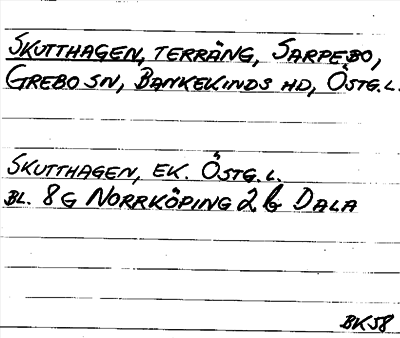 SKUTTHAGEN, TERRÄNG, SARPEBO,
GREBO SN, BANKEKINDS HD, ÖSTG.L.
SKUTTHAGEN, EK. ÖSTG.L.
BL. 8G NORRKÖPING 2b DALA
BK58